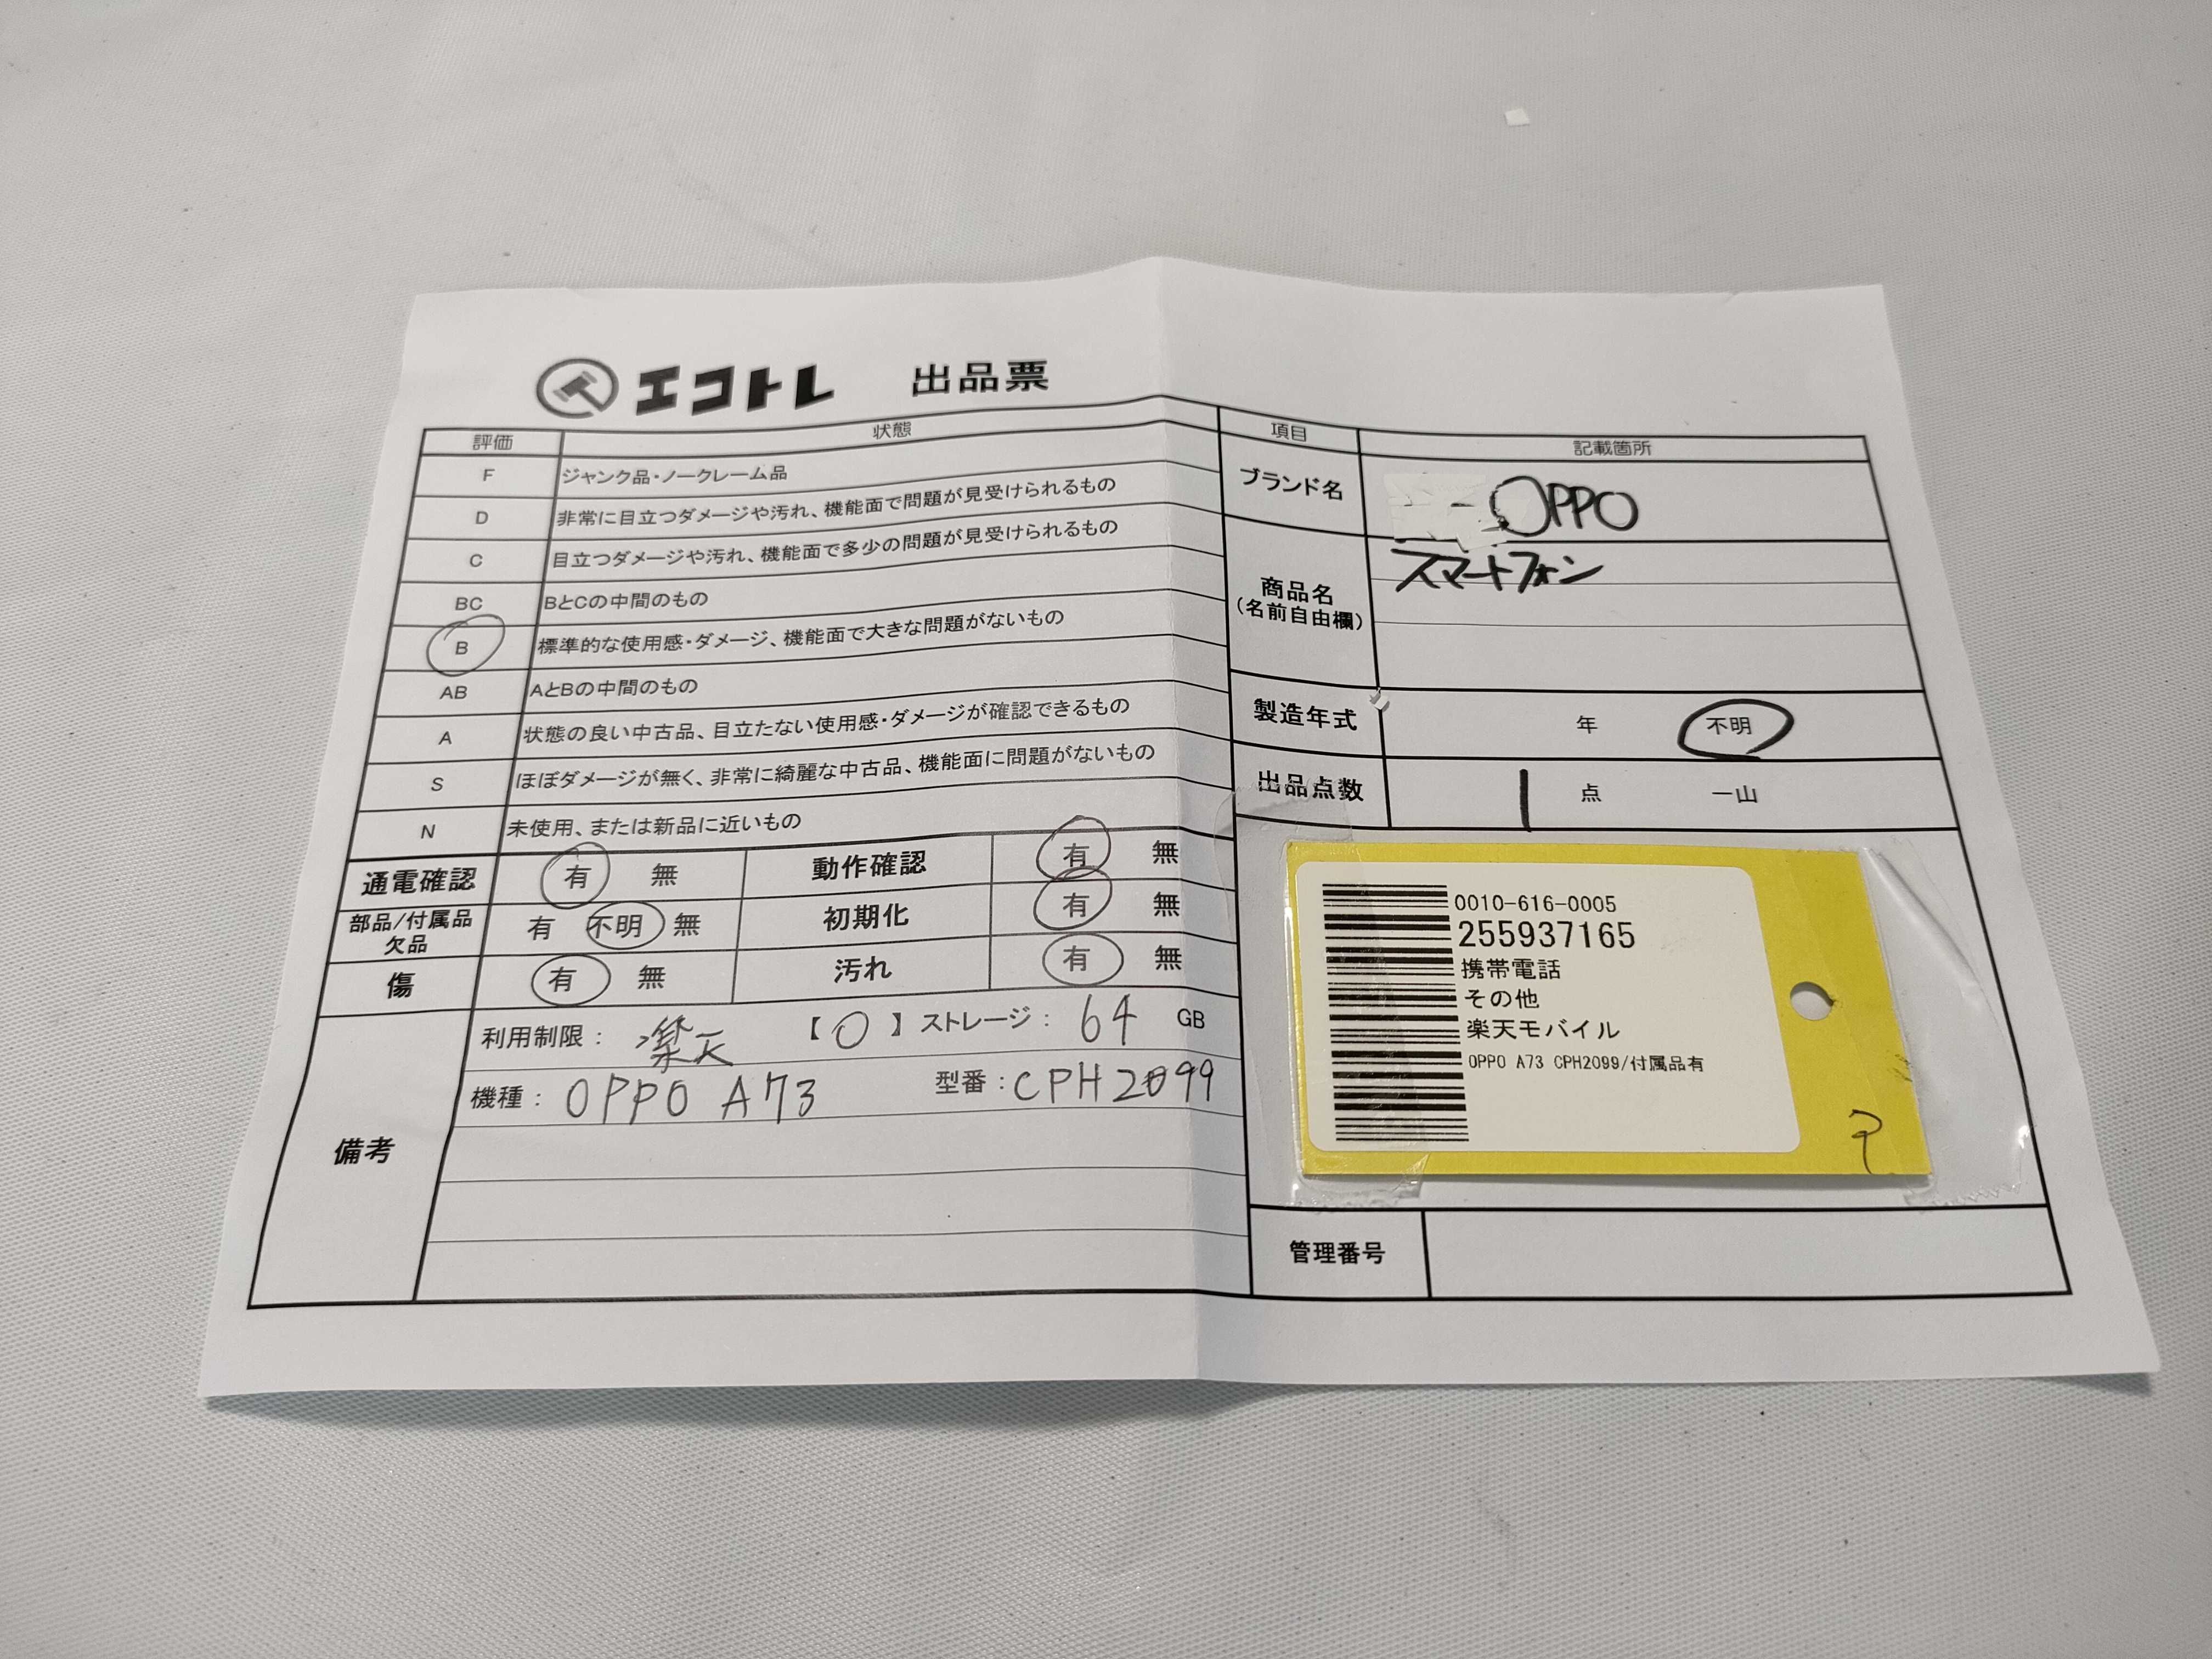 エコトレ 出品票
評価 状態
F ジャンク品・ノークレーム品
D 非常に目立つダメージや汚れ、機能面で問題が見受けられるもの
C 目立つダメージや汚れ、機能面で多少の問題が見受けられるもの
BC BとCの中間のもの
B 標準的な使用感・ダメージ、機能面で大きな問題がないもの
AB AとBの中間のもの
A 状態の良い中古品、目立たない使用感・ダメージが確認できるもの
S ほぼダメージが無く、非常に綺麗な中古品、機能面に問題がないもの
N 未使用、または新品に近いもの
通電確認 有 無 動作確認 有 無
部品/付属品
欠品 有 不明 無 初期化 有 無
傷 有 無 汚れ 有 無
備考
利用制限： 楽天 【〇】 ストレージ： 64 GB
機種： OPPO A73 型番： CPH2099
項目 記載箇所
ブランド名 OPPO
商品名
（名前自由欄）
スマートフォン
製造年式 年 不明
出品点数 1 点 一山
0010-616-0005
255937165
携帯電話
その他
楽天モバイル
OPPO A73 CPH2099/付属品有
管理番号